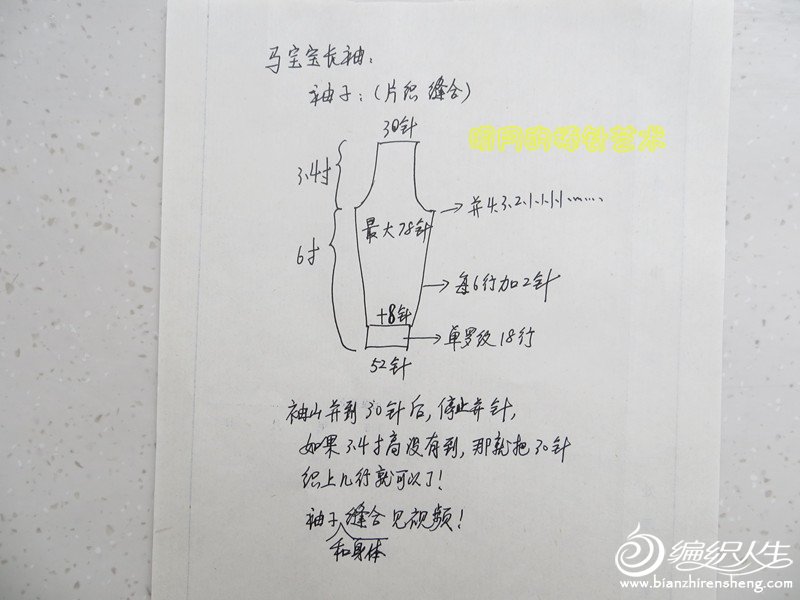 马宝宝长袖：
袖子：（片织 缝合）
30针
3.4寸
→并4.3.2.1.1.1.1.……
最大78针
6寸
→每6行加2针
+8针
→单罗纹18行
52针
袖山并到30针后，停止并针，
如果3.4寸高没有到，那就把30针
织上几行就可以了！
袖子缝合见视频！
和身体
编织人生
www.bianzhirensheng.com